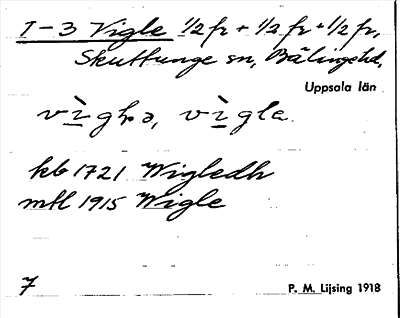 1-3 Vigle 1/2 fr + 1/2 fr + 1/2 fr,
Skuttunge sn, Bälinge hd,
Uppsala län
vìglə, vìgla
kb 1721 Wigledh
mtl 1915 Wigle
7
P. M. Lijsing 1918